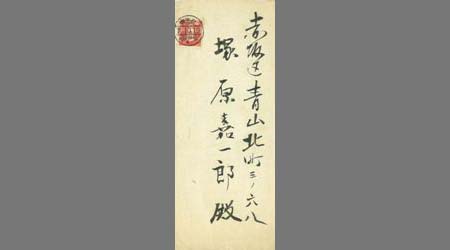 赤坂区青山北町三ノ六八
塚原嘉一郎殿